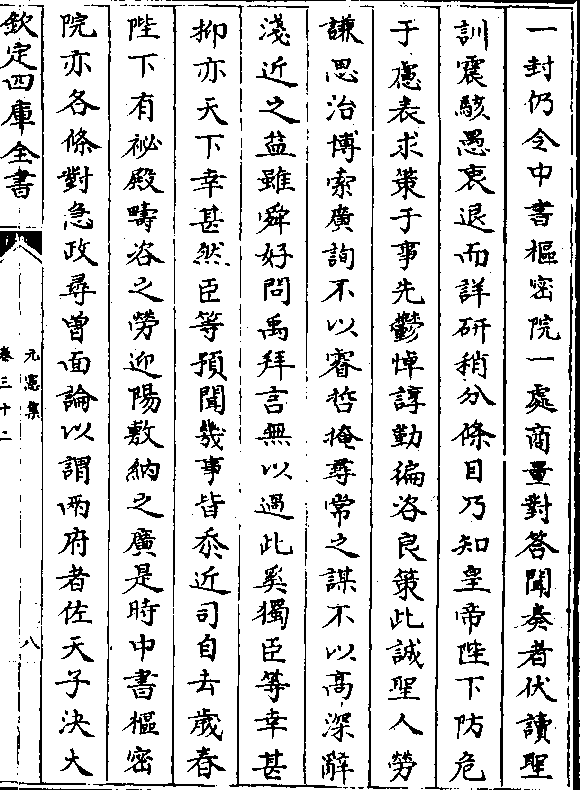 一封仍令中書樞密院一處商量對答聞奏者伏讀聖
訓震駭愚衷退而詳研稍分條目乃知皇帝陛下防危
于慮表求策于事先鬱悼諄勤徧咨良策此誠聖人勞
謙思治博索廣詢不以睿哲掩尋常之謀不以高深辭
淺近之益雖舜好問禹拜言無以過此奚獨臣等幸甚
抑亦天下幸甚然臣等預聞幾事皆忝近司自去歲春
陛下有祕殿疇咨之勞迎陽敷納之廣是時中書樞密
院亦各條對急政尋曾面論以謂兩府者佐天子決大
欽定四庫全書
元憲集
卷三十二
八